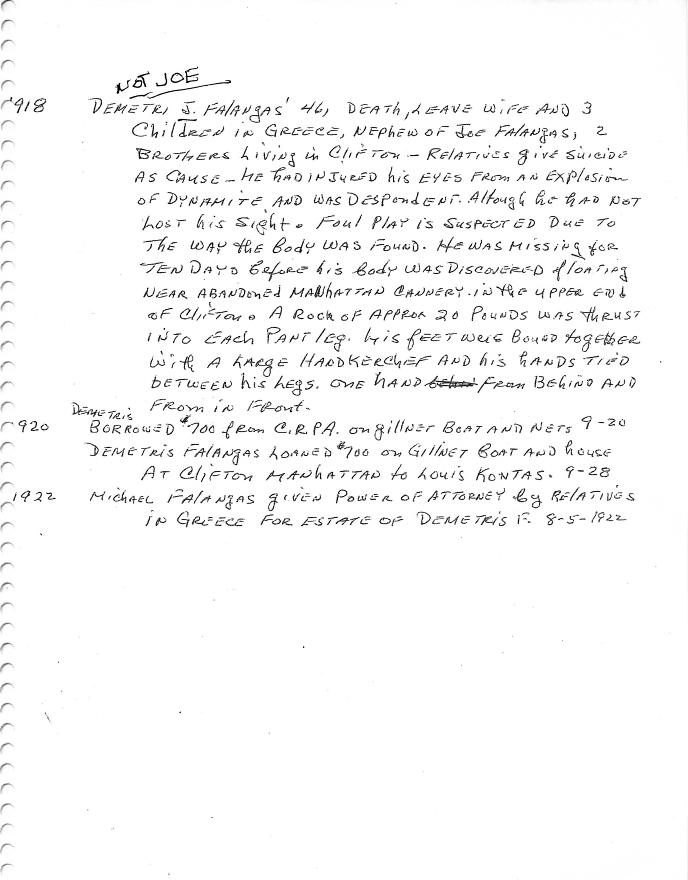 NOT JOE
1918 DEMETRI J. FALANGAS' 46, DEATH, LEAVE WIFE AND 3
CHILDREN IN GREECE, NEPHEW OF JOE FALANGAS, 2
BROTHERS LIVING IN CLIFTON - RELATIVES GIVE SUICIDE
AS CAUSE - HE HAD INJURED HIS EYES FROM AN EXPLOSION
OF DYNAMITE AND WAS DESPONDENT. ALTHOUGH HE HAD NOT
LOST HIS SIGHT. FOUL PLAY IS SUSPECTED DUE TO
THE WAY THE BODY WAS FOUND. HE WAS MISSING FOR
TEN DAYS BEFORE HIS BODY WAS DISCOVERED FLOATING
NEAR ABANDONED MANHATTAN CANNERY. IN THE UPPER END
OF CLIFTON. A ROCK OF APPROX 20 POUNDS WAS THRUST
INTO EACH PANT LEG. HIS FEET WERE BOUND TOGETHER
WITH A LARGE HANDKERCHEF AND HIS HANDS TIED
BETWEEN HIS LEGS. ONE HAND FROM BEHIND AND
FROM IN FRONT.
DEMETRIS
1920 BORROWED $700 FROM C.R.P.A. ON GILLNET BOAT AND NETS 9-20
DEMETRIS FALANGAS LOANED $700 ON GILLNET BOAT AND HOUSE
AT CLIFTON MANHATTAN TO LOUIS KONTAS. 9-28
1922 MICHAEL FALANGAS GIVEN POWER OF ATTORNEY BY RELATIVES
IN GREECE FOR ESTATE OF DEMETRIS F. 8-5-1922